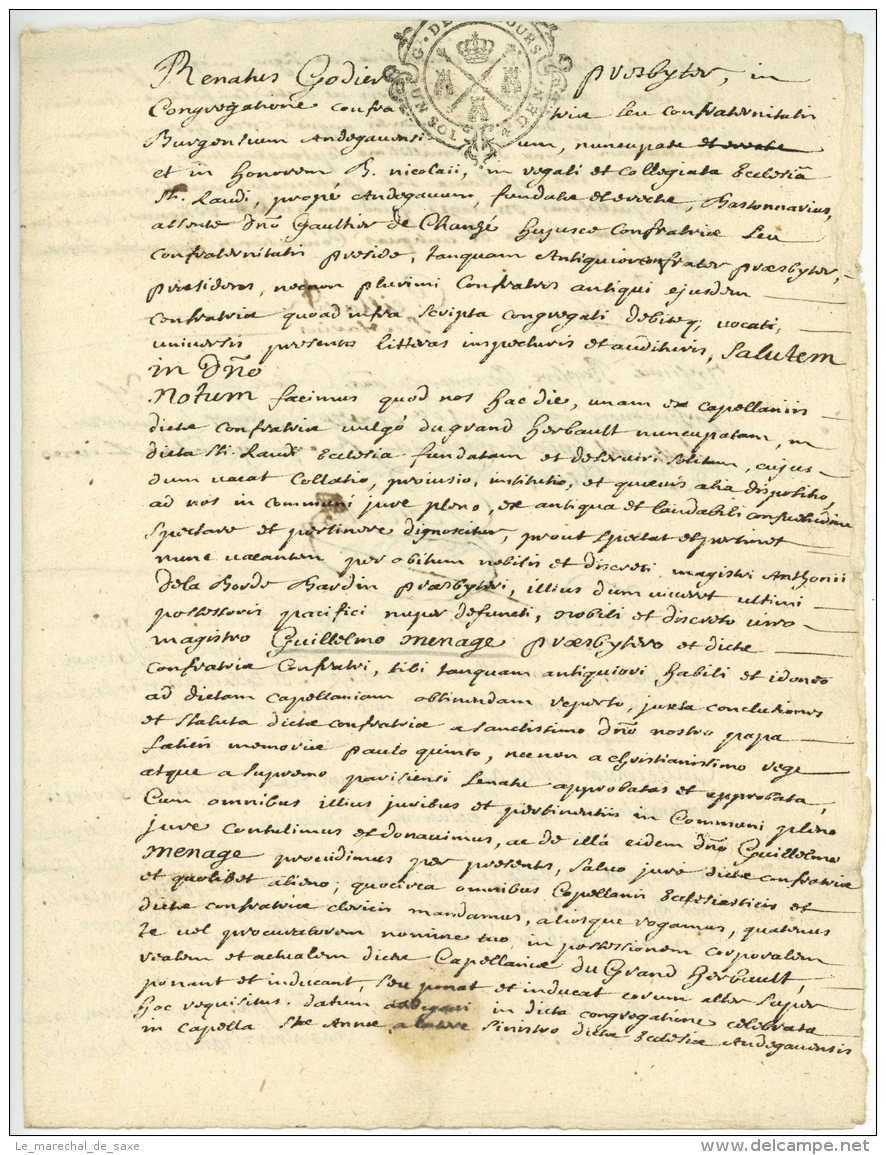 G. DE TOURS
UN SOL 4 DEN
Renatus Godier presbyter, in
Congregatione confratriæ seu confraternitatis
Burgensium Andegavensium, nuncupatæ et erectæ
et in honorem B. nicolaii, in regali et collegiata Ecclesia
Sti. Laudi, propé Andegavum, fundatæ et erectæ, Bastonnarius,
absente dño Gaultier de Changé hujusce confratriæ seu
confraternitatis præside, tanquam antiquior confrater præsbyter,
præsidens, necnon plurimi confratres antiqui ejusdem
confratriæ quoad infra scripta congregati debiteq; vocati,
universis presentes litteras inspecturis et audituris, salutem
in Dño
Notum facimus quod nos hac die, unam ex capellaniis
dictæ confratriæ vulgó du grand herbault nuncupatam, in
dicta Sti. Laudi Ecclesia fundatam et deserviri solitam, cujus-
dum vacat collatio, provisio, institutio, et quævis alia dispositio,
ad nos in communi jure pleno, ex antiqua et laudabili consuetudine
spectare et pertinere dignoscitur, prout spectat et pertinet
nunc vacantem per obitum nobilis et discreti magistri Anthonii
de la Borde hardin præsbyteri, illius dum viveret ultimi
possessoris pacifici nuper defuncti, nobili et discreto viro
magistro Guillelmo menage præsbytero et dictæ
confratriæ confratri, tibi tanquam antiquiori, habili et idoneo
ad dictam capellaniam obtinendam reperto, juxta conclusiones
et statuta dictæ confratriæ a sanctissimo dño nostro papa
fælicis memoriæ paulo quinto, necnon a christianissimo rege
atque a supremo parisiensi senatu approbatas et approbata,
cum omnibus illius juribus et pertinentiis in communi pleno
jure contulimus et donavimus, ac de illá eidem dño Guillelmo
menage providimus per presentes, salvo juré dictæ confratriæ
et quolibet alieno; quocirca omnibus Capellanis Ecclesiasticis et
dictæ confratriæ clericis mandamus, aliosque rogamus, quatenus
te vel procuratorem nomine tuo, in possessionem corporalem
realem et actualem dictæ Capellaniæ du Grand herbault,
ponant et inducant, seu ponat et inducat eorum alter super
hoc requisitus. datum in dicta congregatione celebrata
in capella Stæ Annæ, a latere sinistro dictæ Ecclesiæ Andegavensis
Le_marechal_de_saxe
delcampe.net